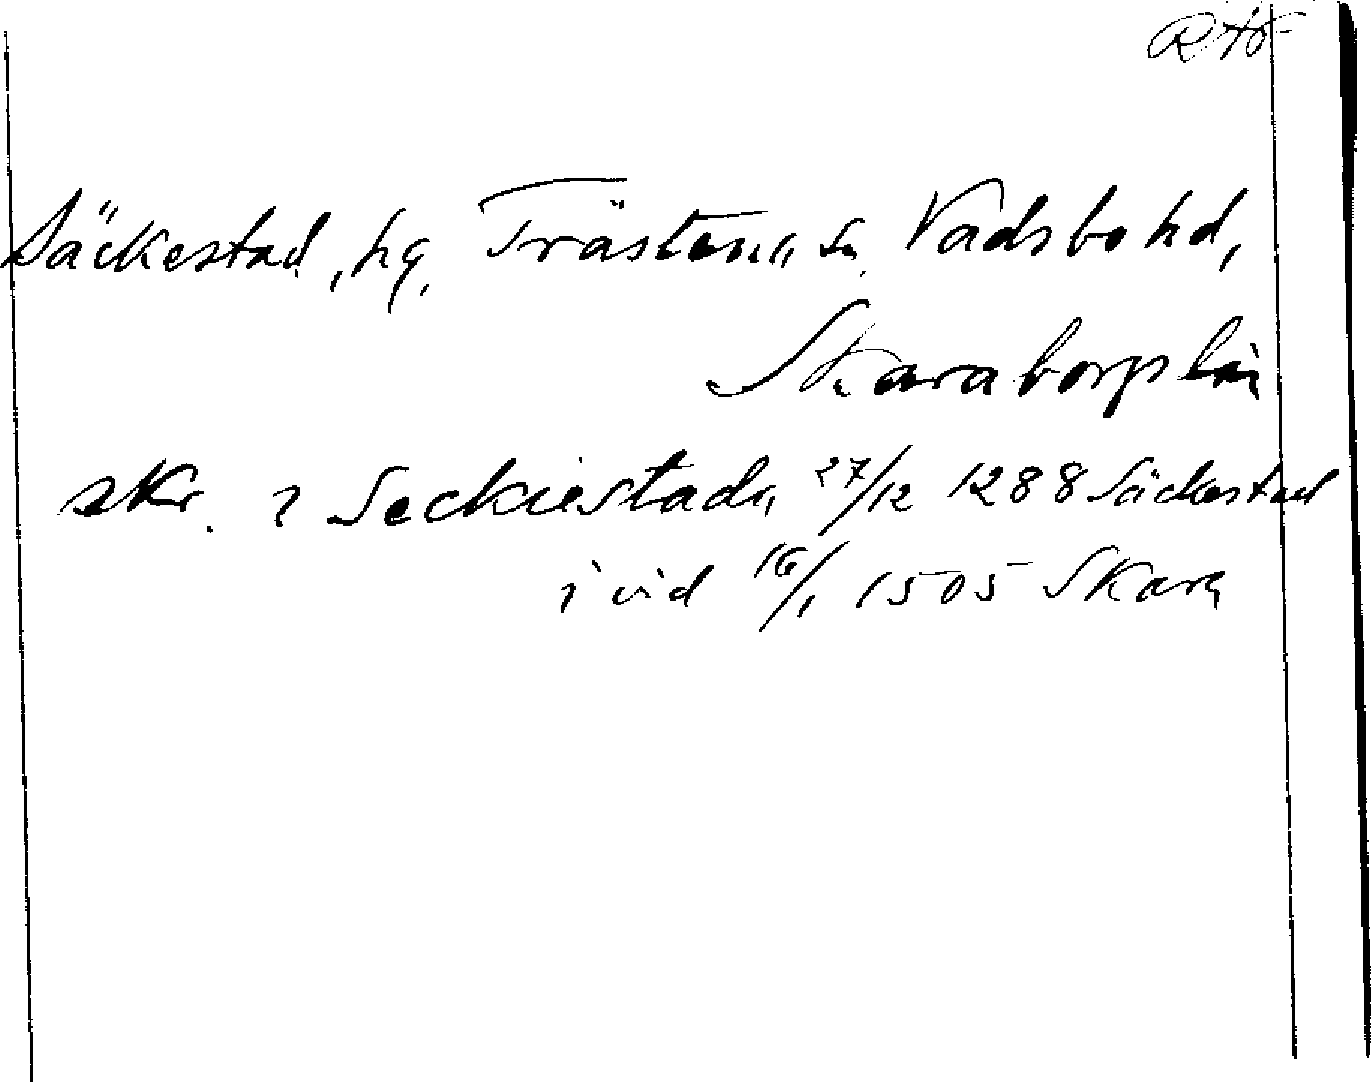 RAÖ
Säckestad, hg, Trästena sn. Vadsbo hd,
Skaraborgs län
skr. i Seckiestada 27/12 1288 Säckestad
i vid 16/1 1505 Skara